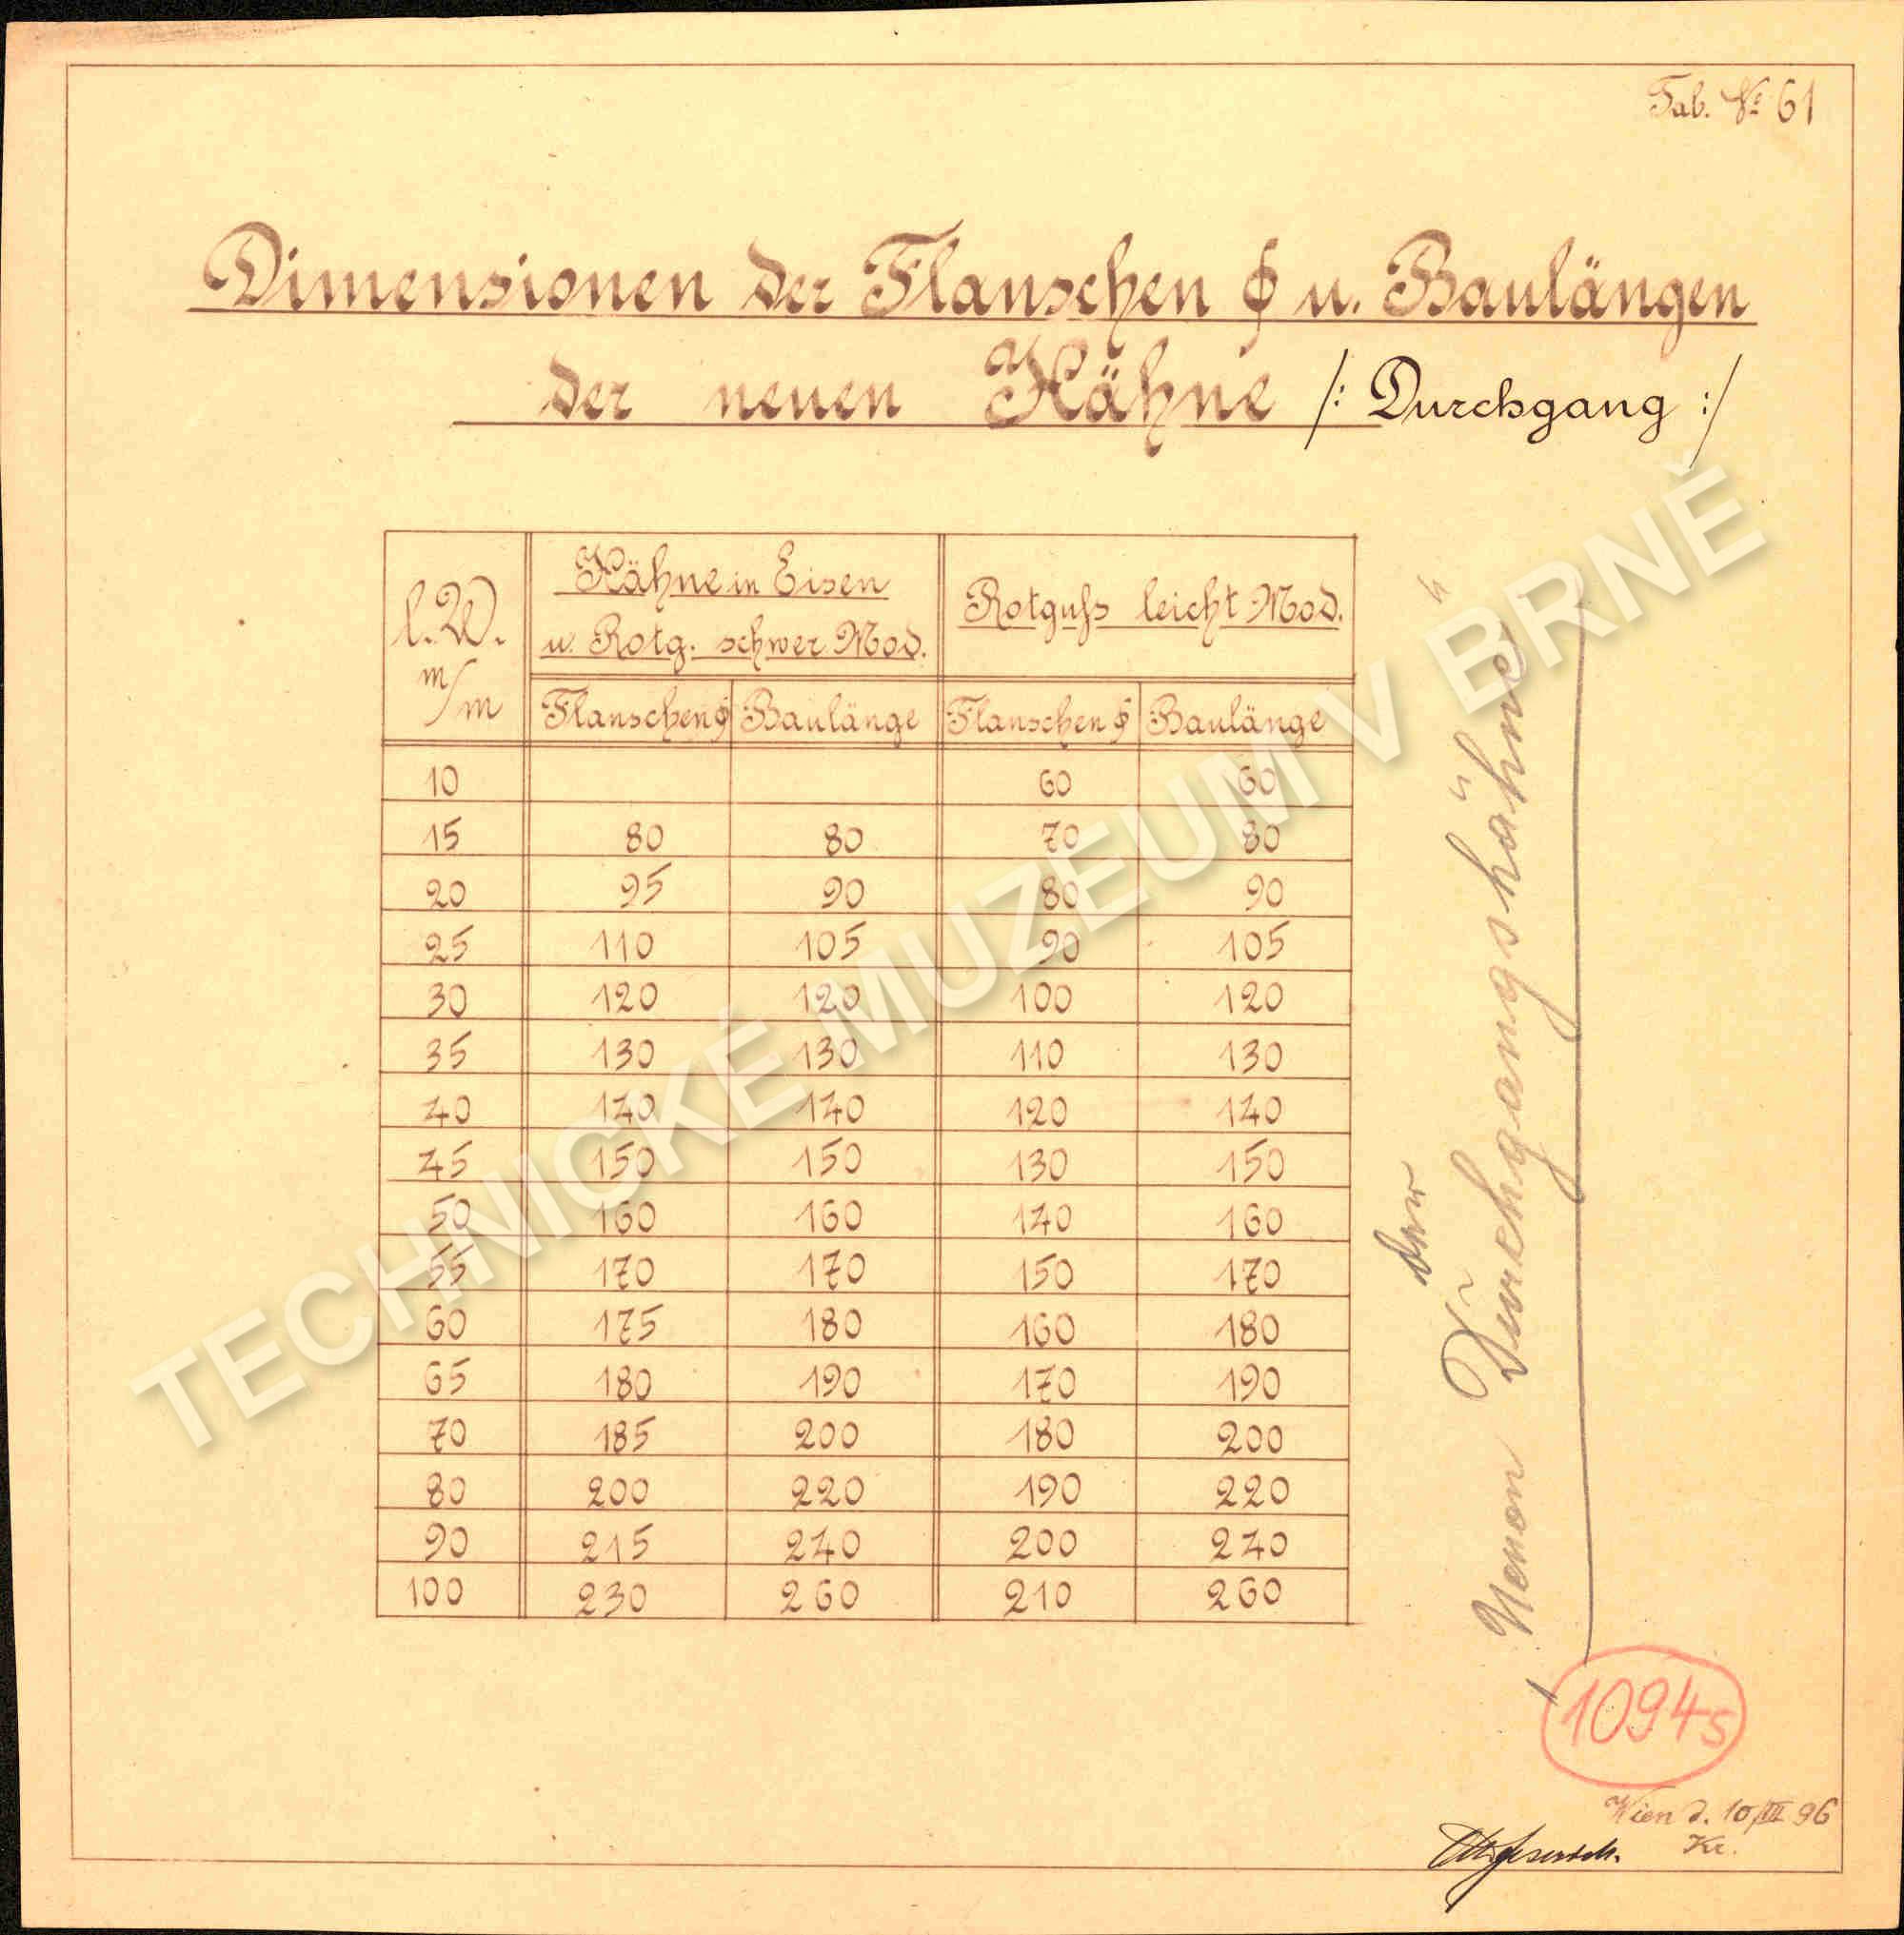 Tab. № 61
Dimensionen der Flanschen ϕ u. Baulängen
der neuen Hähne /: Durchgang :/
l.W. m/m
Hähne in Eisen
u. Rotg. schwer Mod.
Rotguſs leicht Mod.
Flanschen ϕ Baulänge Flanschen ϕ Baulänge
10 60 60
15 80 80 70 80
20 95 90 80 90
25 110 105 90 105
30 120 120 100 120
35 130 130 110 130
40 140 140 120 140
45 150 150 130 150
50 160 160 140 160
55 170 170 150 170
60 175 180 160 180
65 180 190 170 190
70 185 200 180 200
80 200 220 190 220
90 215 240 200 240
100 230 260 210 260
der
Durchgangshähne
1094s
Wien d. 10/III 96
Kr.
TECHNICKÉ MUZEUM V BRNĚ